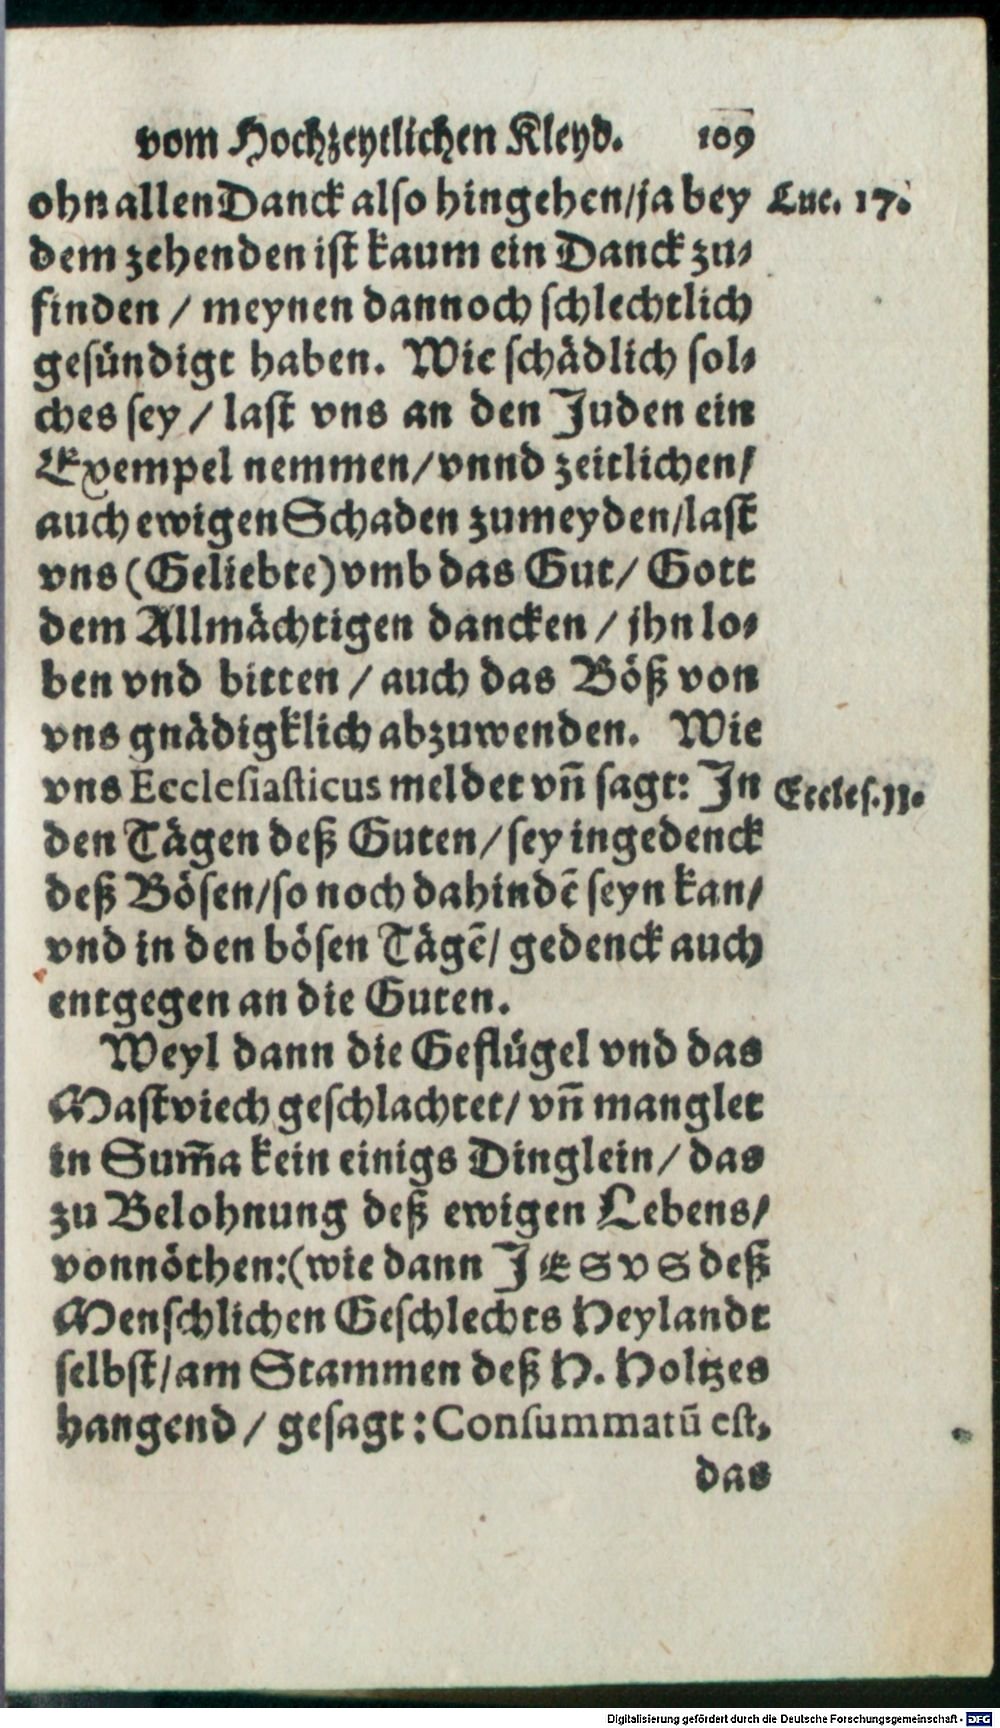 vom Hochzeytlichen Kleyd. 109
ohn allen Danck also hingehen/ja bey Luc. 17.
dem zehenden ist kaum ein Danck zu-
finden / meynen dannoch schlechtlich
gesündigt haben. Wie schädlich sol-
ches sey / last vns an den Juden ein
Exempel nemmen/vnnd zeitlichen/
auch ewigen Schaden zumeyden/last
vns (Geliebte) vmb das Gut/ Gott
dem Allmächtigen dancken / jhn lo-
ben vnd bitten / auch das Böß von
vns gnädigklich abzuwenden. Wie
vns Ecclesiasticus meldet vñ sagt: In Eccles. 11.
den Tägen deß Guten/sey ingedenck
deß Bösen/so noch dahindẽ seyn kan/
vnd in den bösen Tägẽ/ gedenck auch
entgegen an die Guten.
Weyl dann die Geflügel vnd das
Mastviech geschlachtet/ vñ manglet
in Sum̃a kein einigs Dinglein/ das
zu Belohnung deß ewigen Lebens/
vonnöthen:(wie dann JESVS deß
Menschlichen Geschlechts Heylandt
selbst/am Stammen deß H. Holtzes
hangend / gesagt: Consummatũ est,
das
Digitalisierung gefördert durch die Deutsche Forschungsgemeinschaft - DFG